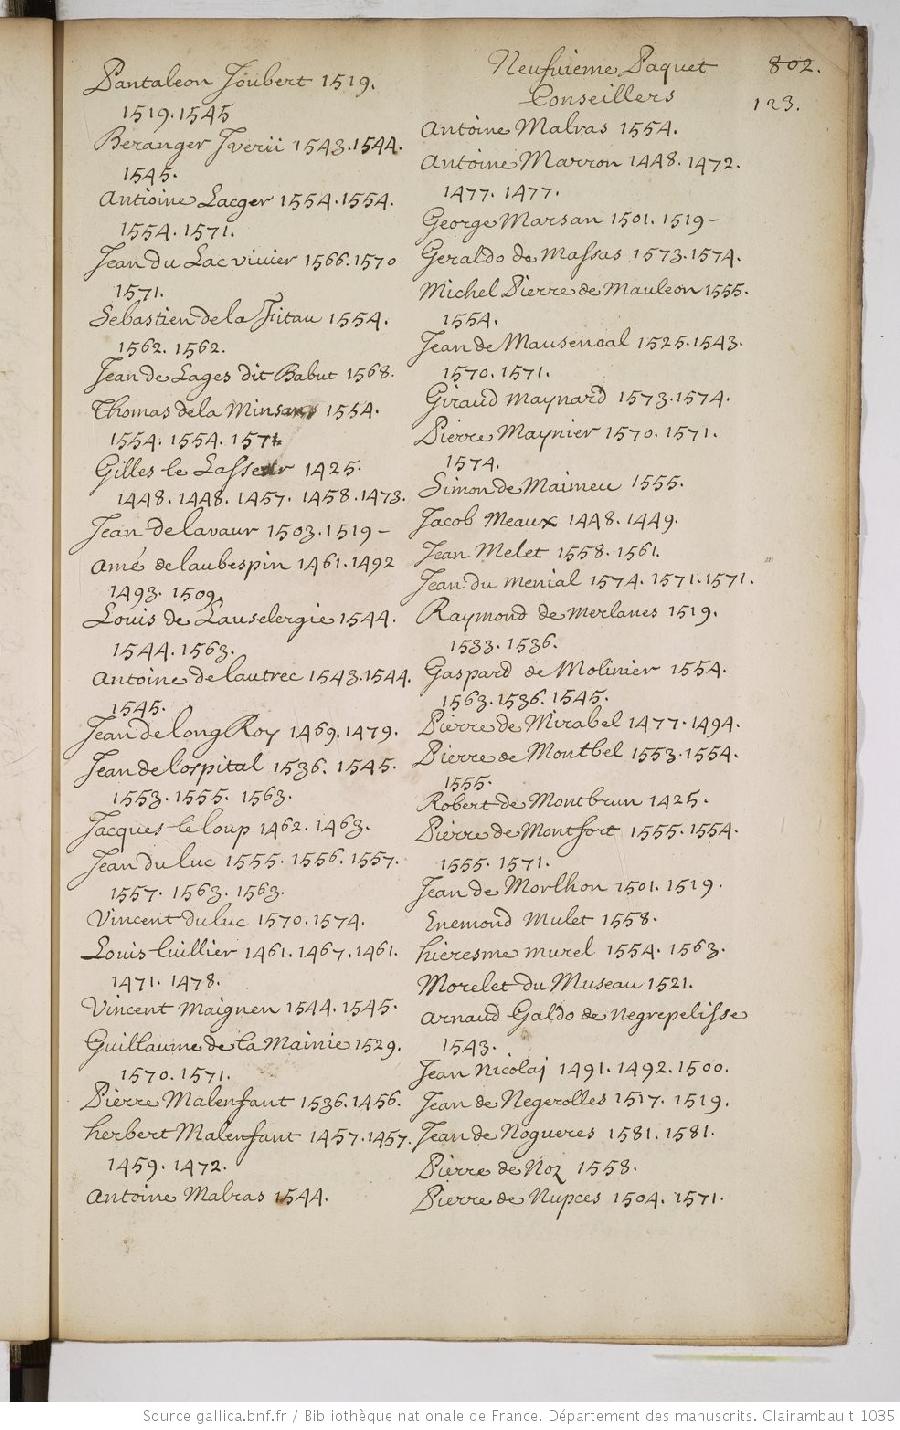 Neufvieme Paquet 802.
Conseillers 123.
Pantaleon Joubert 1519.
1519. 1545
Beranger Iverii 1543. 1544.
1545.
Antioine Lacger 1554. 1554.
1554. 1571.
Jean du Lac vivier 1566. 1570
1571.
Sebastien de la Fitau 1554.
1562. 1562.
Jean de Lages dit Babut 1568.
Thomas de la 1554.
1554. 1554. 1571
Gilles le Lasseur 1425.
1448. 1448. 1457. 1458. 1473.
Jean de lavaur 1503. 1519 -
Amé de laubespin 1461. 1492
1493. 1509.
Louis de Lauselergie 1544.
1544. 1563.
Antoine de lautrec 1543. 1544.
1545.
Jean de long Roy 1469. 1479.
Jean de lospital 1536. 1545.
1553. 1555. 1563.
Jacques le loup 1462. 1463.
Jean du luc 1555. 1556. 1557.
1557. 1563. 1563.
Vincent du luc 1570. 1574.
Louis luillier 1461. 1467. 1461.
1471. 1478.
Vincent Maignen 1544. 1545.
Guillaume de la Mainie 1529.
1570. 1571.
Pierre Malenfant 1536. 1456.
herbert Malenfant 1457. 1457.
1459. 1472.
Antoine Mabras 1544.
Antoine Malras 1554.
Antoine Marron 1448. 1472.
1477. 1477.
George Marsan 1501. 1519 -
Geraldo de Massus 1573. 1574.
Michel Pierre de Mauleon 1555.
1554.
Jean de Mausencal 1525. 1543.
1570. 1571.
Giraud Maynard 1573. 1574.
Pierre Maynier 1570. 1571.
1574.
Simon de Maimeu 1555.
Jacob Meaux 1448. 1449.
Jean Melet 1558. 1561.
Jean du menial 1574. 1571. 1571.
Raymond de merlanes 1519.
1533. 1536.
Gaspard de Molinier 1554.
1563. 1536. 1545.
Pierre de Mirabel 1477. 1494.
Pierre de Montbel 1553. 1554.
1555.
Robert de Montbrun 1425.
Pierre de Montfort 1555. 1554.
1555. 1571.
Jean de Morlhon 1501. 1519.
Enemond Mulet 1558.
hieresme murel 1554. 1563.
Morelet du Museau 1521.
Arnaud Galdo de Negrepelisse
1543.
Jean Nicolaj 1491. 1492. 1500.
Jean de Negerolles 1517. 1519.
Jean de Nogueres 1581. 1581.
Pierre de Noz 1558.
Pierre de Nupces 1504. 1571.
Source gallica.bnf.fr / Bibliothèque nationale de France. Département des manuscrits. Clairambault 1035